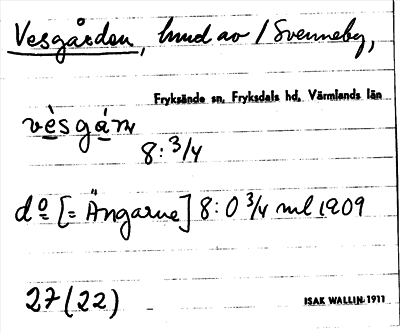 Vesgården, hmd av 1 Svenneby,
Fryksände sn, Fryksdals hd, Värmlands län
vèsgáṇ
8:3/4
do [= Ängarne] 8:0 3/4 ml 1909
27 (22)
ISAK WALLIN 1911